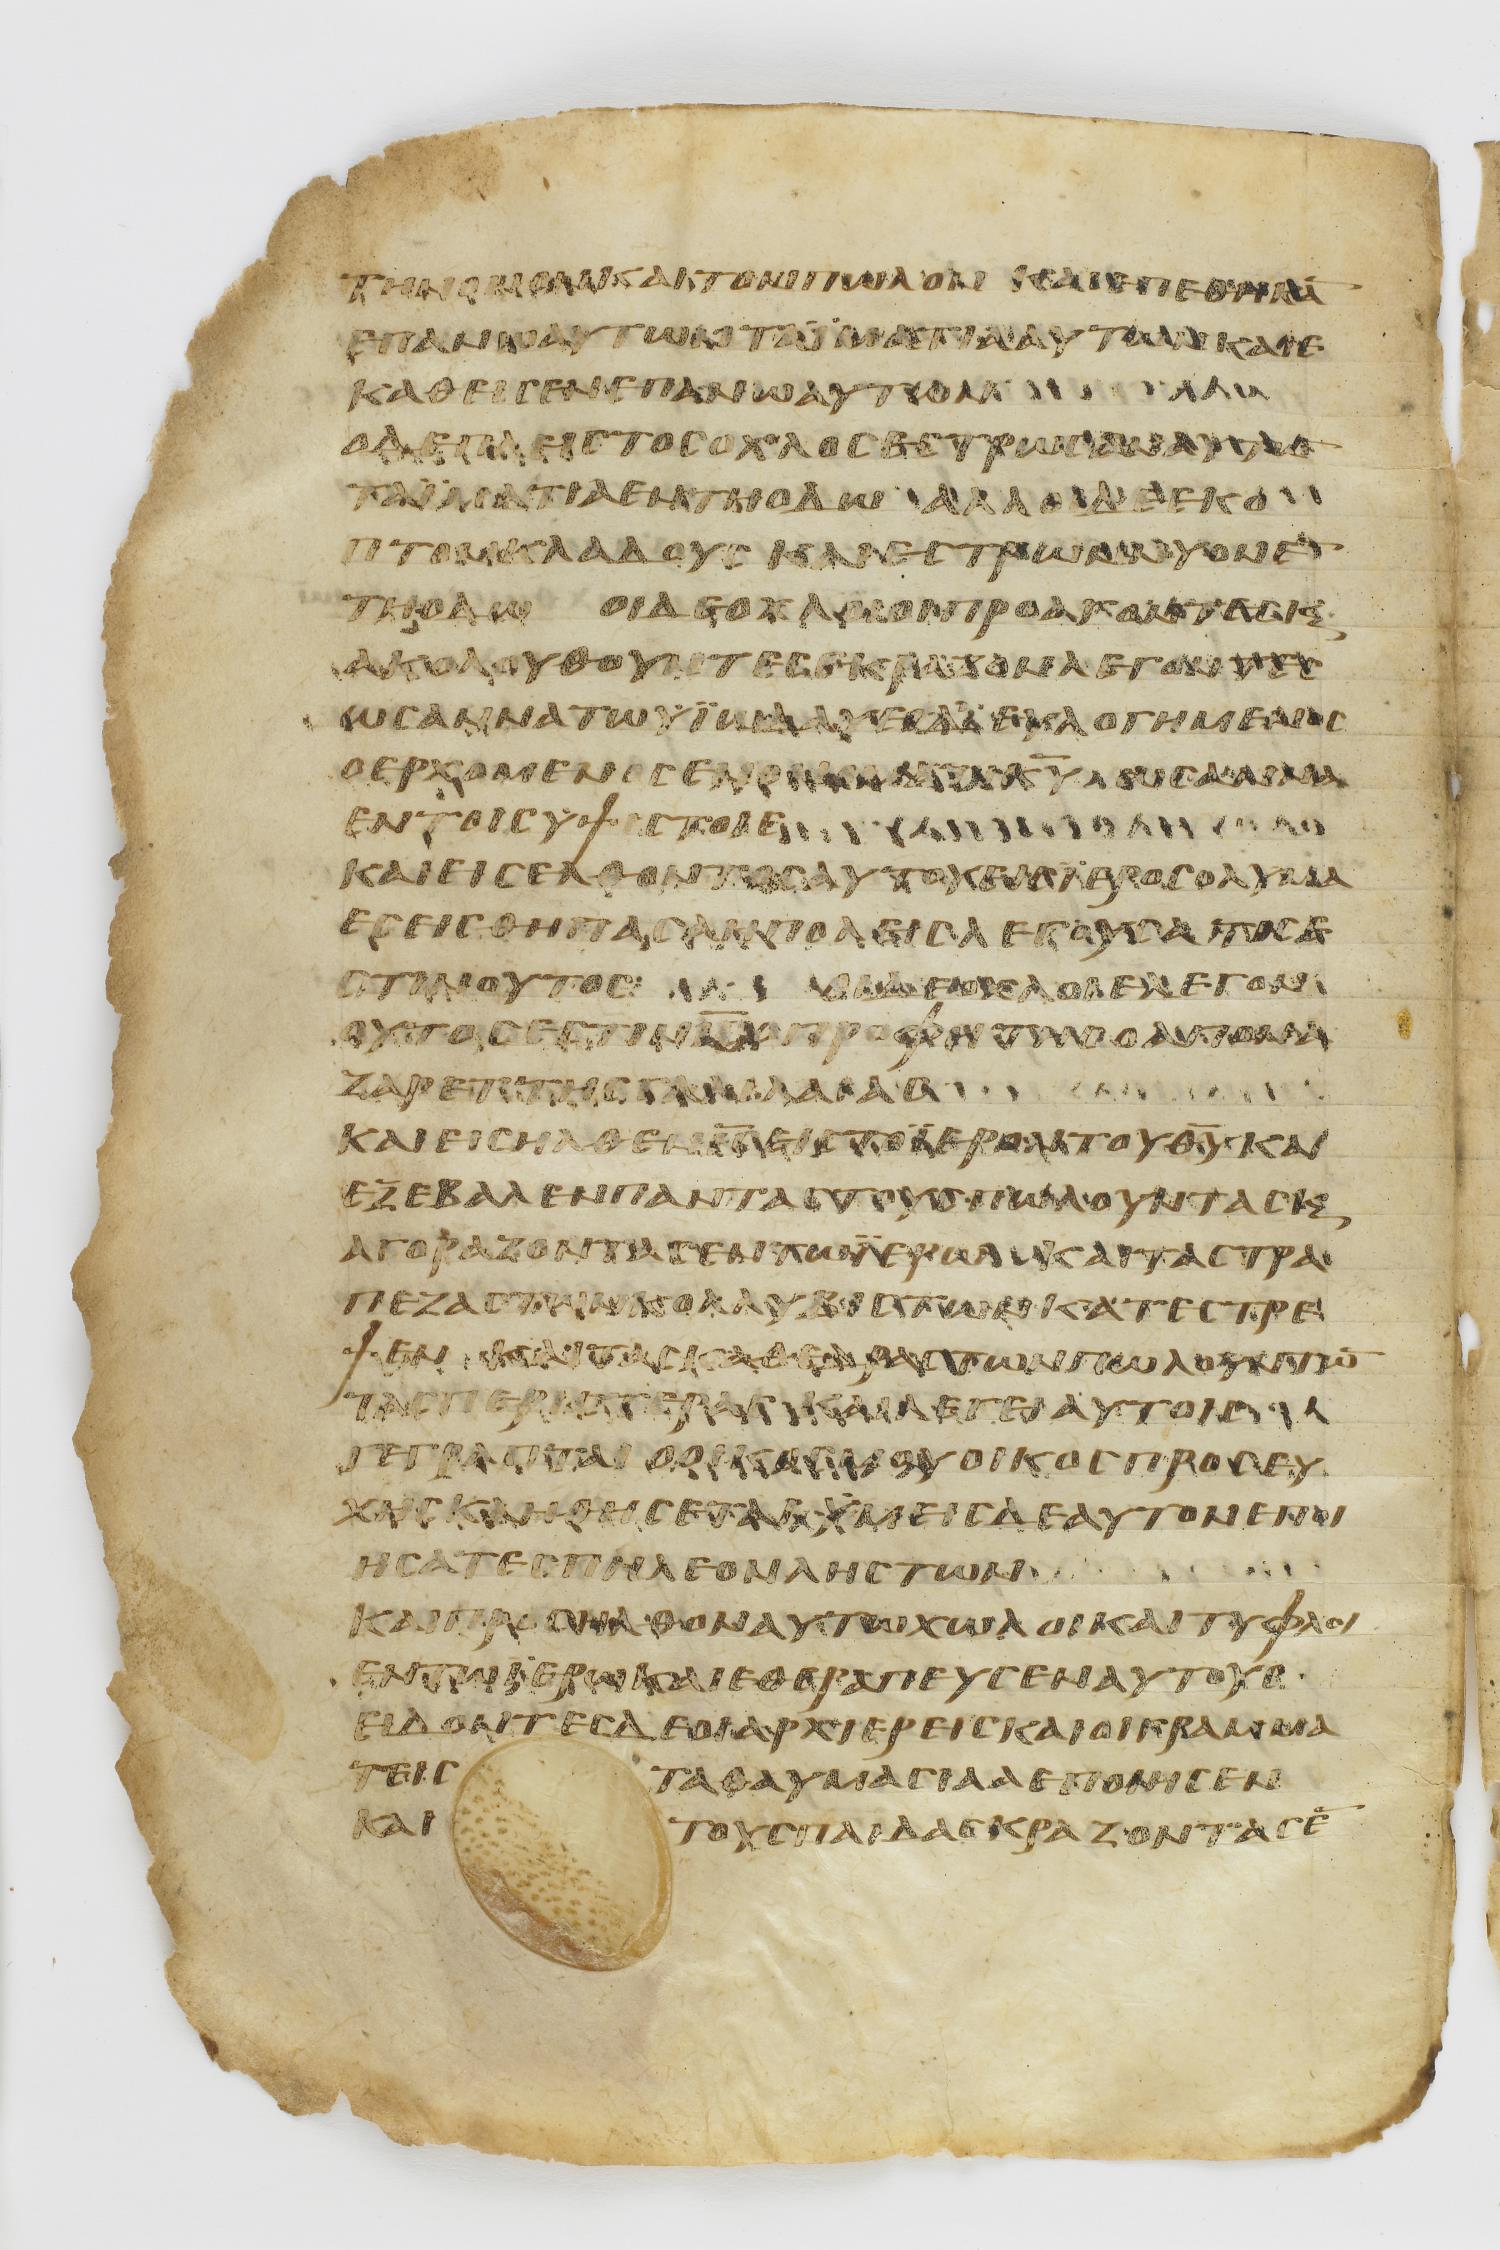 ΤΗΝ ΟΝΟΝ ΚΑΙ ΤΟΝ ΠΩΛΟΝ ΚΑΙ ΕΠΕΘΗΚΑ̅
ΕΠΑΝΩ ΑΥΤΩΝ ΤΑ ΪΜΑΤΙΑ ΑΥΤΩΝ ΚΑΙ Ε
ΚΑΘΕΙϹΕΝ ΕΠΑΝΩ ΑΥΤΩΝ
Ο ΔΕ ΠΛΕΙϹΤΟϹ ΟΧΛΟϹ ΕϹΤΡΩϹΑΝ ΕΑΥΤΩ̅
ΤΑ ΪΜΑΤΙΑ ΕΝ ΤΗ ΟΔΩ ΑΛΛΟΙ ΔΕ ΕΚΟ
ΠΤΟΝ ΚΛΑΔΟΥϹ ΚΑΙ ΕϹΤΡΩΝΝΥΟΝ Ε̅
ΤΗ ΟΔΩ ΟΙ ΔΕ ΟΧΛΟΙ ΟΙ ΠΡΟΑΓΟΝΤΕϹ Ϗ
ΑΚΟΛΟΥΘΟΥΝΤΕϹ ΕΚΡΑΖΟΝ ΛΕΓΟΝΤΕϹ
ΩϹΑΝΝΑ ΤΩ ΥΪΩ ΔΑΥΕΙΔ ΕΥΛΟΓΗΜΕΝΟϹ
Ο ΕΡΧΟΜΕΝΟϹ ΕΝ ΟΝΟΜΑΤΙ Κ̅Υ̅ ΩϹΑΝΝΑ
ΕΝ ΤΟΙϹ ΥΨΙϹΤΟΙϹ
ΚΑΙ ΕΙϹΕΛΘΟΝΤΟϹ ΑΥΤΟΥ ΕΙϹ ΪΕΡΟϹΟΛΥΜΑ
ΕϹΕΙϹΘΗ ΠΑϹΑ Η ΠΟΛΙϹ ΛΕΓΟΥϹΑ ΤΙϹ Ε
ϹΤΙΝ ΟΥΤΟϹ ΟΙ ΔΕ ΟΧΛΟΙ ΕΛΕΓΟΝ
ΟΥΤΟϹ ΕϹΤΙΝ Ι̅Ϲ̅ Ο ΠΡΟΦΗΤΗϹ Ο ΑΠΟ ΝΑ
ΖΑΡΕΘ ΤΗϹ ΓΑΛΙΛΑΙΑϹ
ΚΑΙ ΕΙϹΗΛΘΕΝ Ι̅Ϲ̅ ΕΙϹ ΤΟ ΪΕΡΟΝ ΤΟΥ Θ̅Υ̅ ΚΑΙ
ΕΞΕΒΑΛΕΝ ΠΑΝΤΑϹ ΤΟΥϹ ΠΩΛΟΥΝΤΑϹ Ϗ
ΑΓΟΡΑΖΟΝΤΑϹ ΕΝ ΤΩ ΪΕΡΩ ΚΑΙ ΤΑϹ ΤΡΑ
ΠΕΖΑϹ ΤΩΝ ΚΟΛΛΥΒΙϹΤΩΝ ΚΑΤΕϹΤΡΕ
ΨΕΝ ΚΑΙ ΤΑϹ ΚΑΘΕΔΡΑϹ ΤΩΝ ΠΩΛΟΥΝΤΩ̅
ΤΑϹ ΠΕΡΙϹΤΕΡΑϹ ΚΑΙ ΛΕΓΕΙ ΑΥΤΟΙϹ
ΓΕΓΡΑΠΤΑΙ Ο ΟΙΚΟϹ ΜΟΥ ΟΙΚΟϹ ΠΡΟϹΕΥ
ΧΗϹ ΚΛΗΘΗϹΕΤΑΙ ΥΜΕΙϹ ΔΕ ΑΥΤΟΝ ΕΠΟΙ
ΗϹΑΤΕ ϹΠΗΛΕΟΝ ΛΗϹΤΩΝ
ΚΑΙ ΠΡΟϹΗΛΘΟΝ ΑΥΤΩ ΧΩΛΟΙ ΚΑΙ ΤΥΦΛΟΙ
ΕΝ ΤΩ ΪΕΡΩ ΚΑΙ ΕΘΕΡΑΠΕΥϹΕΝ ΑΥΤΟΥϹ
ΕΙΔΟΝΤΕϹ ΔΕ ΟΙ ΑΡΧΙΕΡΕΙϹ ΚΑΙ ΟΙ ΓΡΑΜΜΑ
ΤΕΙϹ ΤΑ ΘΑΥΜΑϹΙΑ Α ΕΠΟΙΗϹΕΝ
ΚΑΙ ΤΟΥϹ ΠΑΙΔΑϹ ΚΡΑΖΟΝΤΑϹ Ε̅